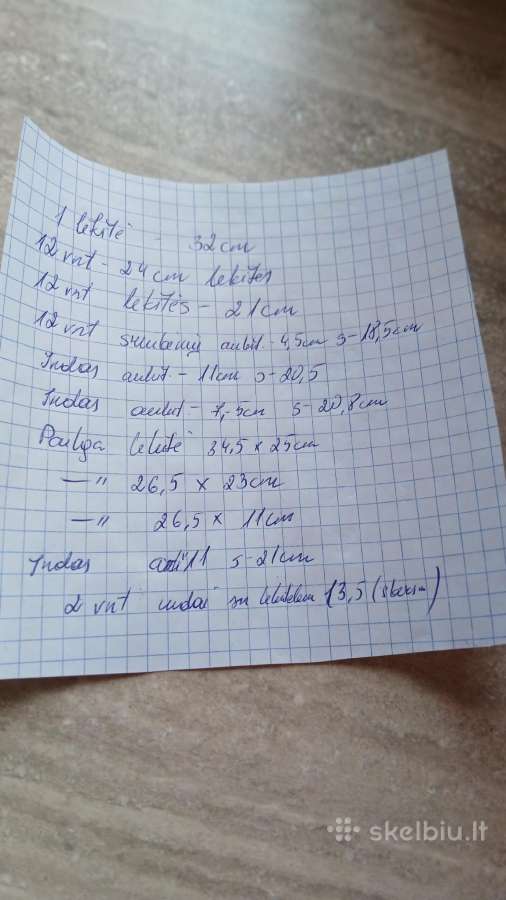 1 lekštė - 32cm
12 vnt - 24cm lekštės
12 vnt lekštės - 21cm
12 vnt aukšt 4,5cm s-18,5cm
Indas aukšt - 11cm s-20,5
Indas aukšt - 7,5cm s-20,8cm
Pailga lekštė 34,5 x 25cm
—" 26,5 x 23cm
—" 26,5 x 11cm
Indas 11 s-21cm
2 vnt indai su 13,5
skelbiu.lt